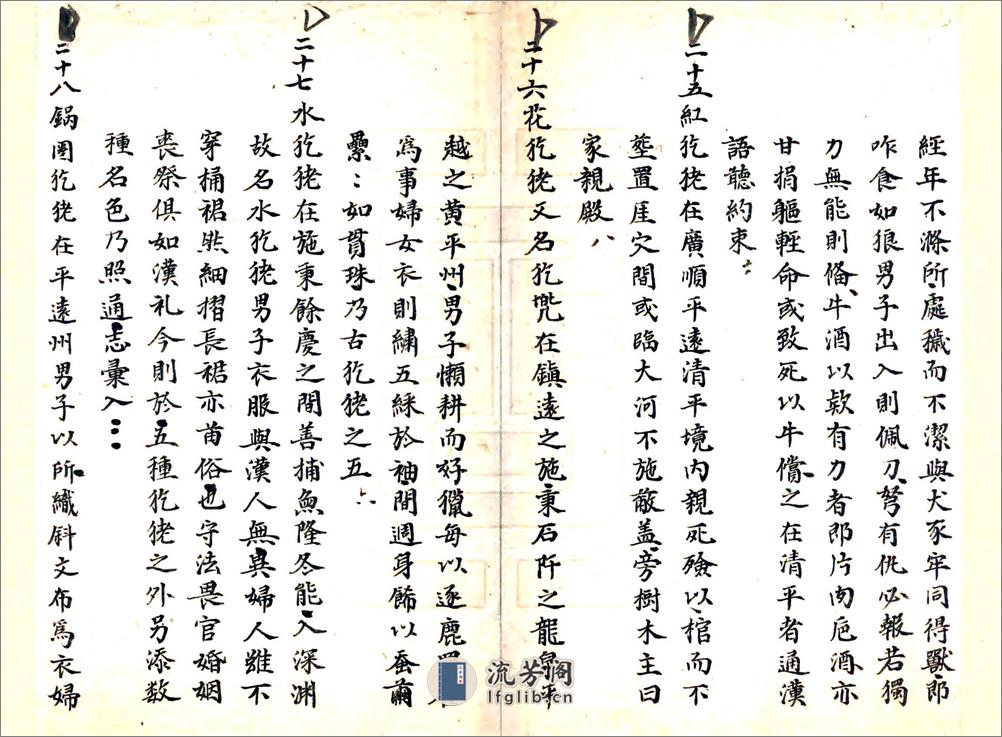 經年不滌所處穢而不潔與犬豕牢同得獸即
咋食如狼男子出入則佩刀弩有仇必報若獨
力無能則俻牛酒以欵有力者即片肉巵酒亦
甘捐軀輕命或致死以牛償之在清平者通漢
語聽約束
二十五紅犵狫在廣順平遠清平境内親死殮以棺而不
塟置厓穴間或臨大河不施蔽盖旁樹木主曰
家親殿
二十六花犵狫又名犵兠在鎮遠之施秉石阡之龍泉平
越之黄平州男子懶耕而好獵每以逐鹿羅
爲事婦女衣則繡五綵於袖間週身飾以蚕繭
纍：如貫珠乃古犵狫之五
二十七水犵狫在施秉餘慶之間善捕魚隆冬能入深渊
故名水犵狫男子衣服與漢人無異婦人雖不
穿桶裙然細摺長裙亦苗俗也守法畏官婚姻
喪祭俱如漢礼今則於五種犵狫之外另添数
種名色乃照通志彙入
二十八鍋圈犵狫在平遠州男子以所織斜文布爲衣婦
流芳閣
lfglib.cn